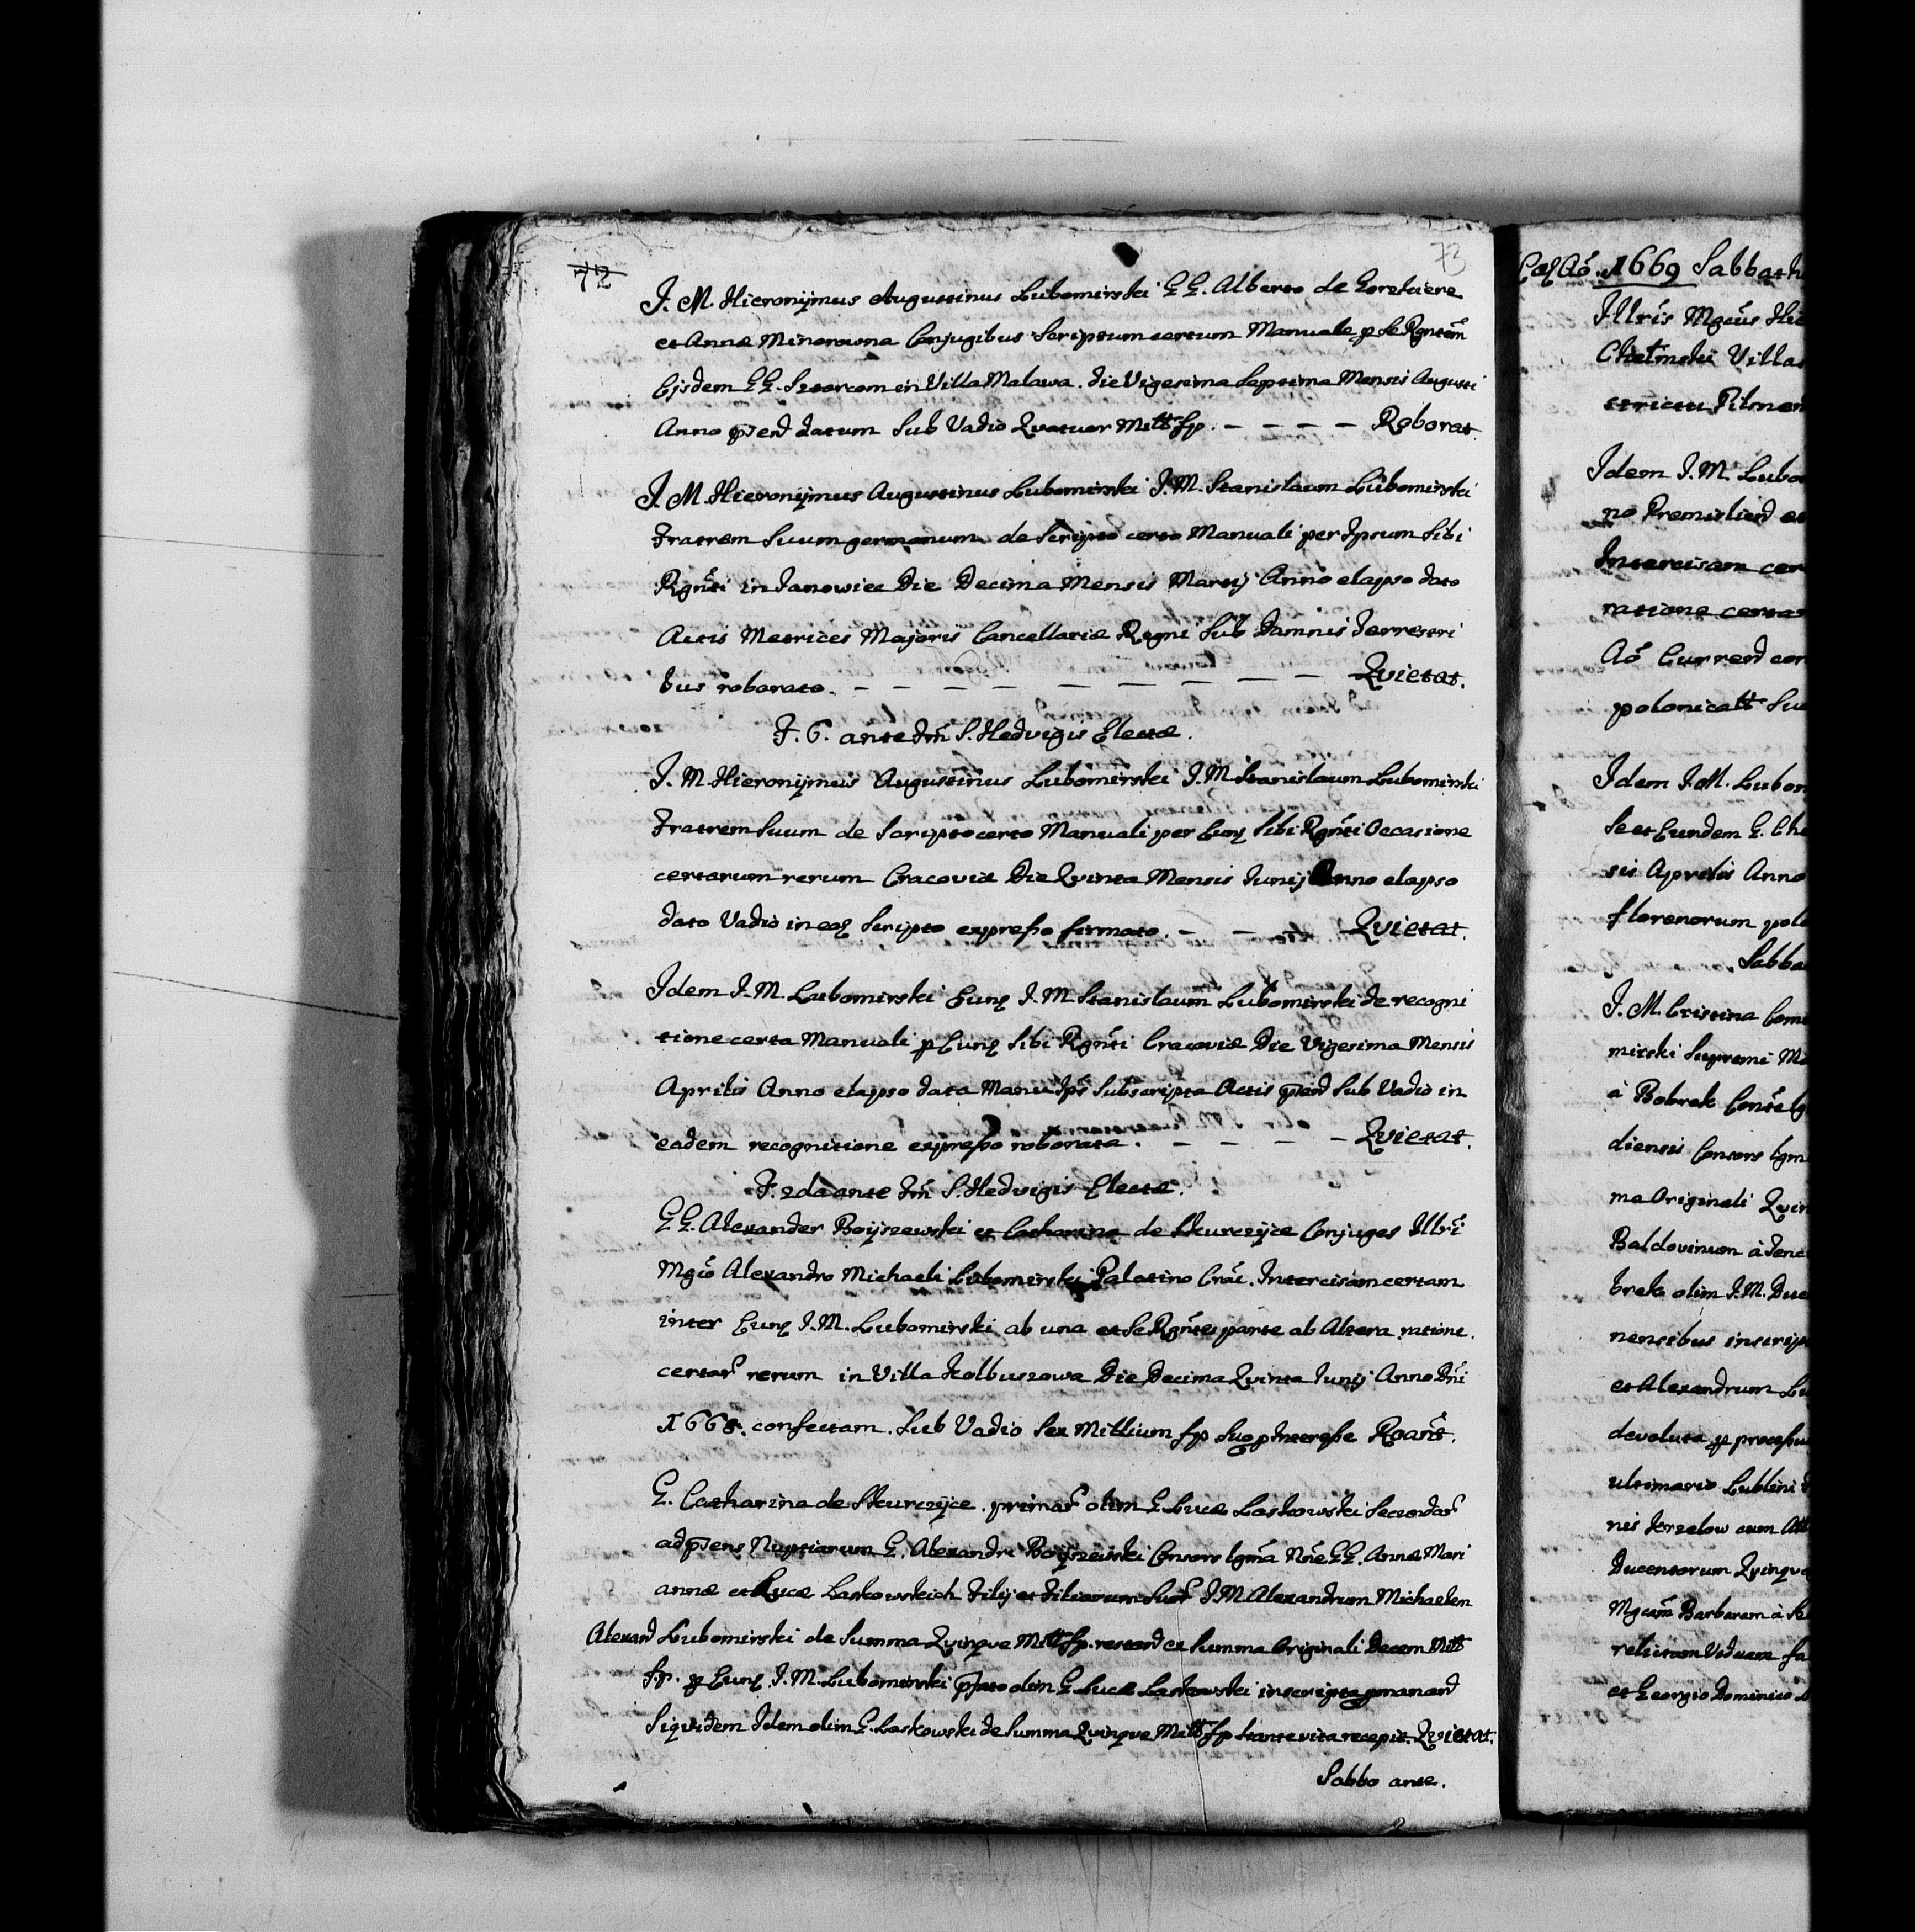 72
73
J. M. Hieronijmus Augustinus Lubomirski GG. Alberto de
et Annæ Minorowna Conjugibus Scriptum certum Manuale p Se Rgntem
Ejsdem GG. in Villa Malawa. die Vigesima Septima Mensis Augusti
Anno datum Sub Vadio Qvatuor Mill fp. – – – – Roborat.
J. M. Hieronijmus Augustinus Lubomirski J. M. Stanislaum Lubomirski
Fratrem Suum germanum de Scripto certo Manuali per Ipsum Sibi
Rgnti in Janowiec Die Decima Mensis Martij Anno elapso dato
Actis Metrices Majoris Cancellariæ Regni Sub Damnis Terrestri
bus roborato. – – – – – – – – – Qvietat.
F. 6. ante Fm S. Hedvigis Electæ.
J. M. Hieronijmus Augustinus Lubomirski J. M. Stanislaum Lubomirski
Fratrem Suum de Scripto certo Manuali per Eunq Sibi Rgnti Occasione
certarum rerum Cracoviæ Die Qvinta Mensis Junij Anno elapso
dato Vadio in eoq Scripto expresso firmato. – – – Qvietat.
Idem J. M. Lubomirski Eunq J. M. Stanislaum Lubomirski de recogni
tione certa Manuali p Eunq Sibi Rgnti Cracoviæ Die Vigesima Mensis
Aprilis Anno elapso data Manu Ips Subscripta Actis Sub Vadio in
eadem recognitione expresso roborata. – – – – Qvietat.
F. 2da ante Fm S. Hedvigis Electæ.
GG. Alexander Boijszewski et Catharina de Skurczijce Conjuges Illri
Mgco Alexandro Michaeli Lubomirski Palatino Crac. Intercisam certam
inter Eunq J. M. Lubomirski ab una et Se Rgntes parte ab Altera ratione
certar rerum in Villa Kolbuszowa Die Decima Qvinta Junij Anno Dni
1668. confectam. Sub Vadio Sex Millium fp Interesse
G. Catharina de Skurczijce. primar olim G. Lucæ Laskowski Secundar
ad Nuptiarum G. Alexandri Boijszewski Consors Lgma Nne GG. Annæ Mari
annæ et Lucæ Laskowskich Filij et Filiarum Suar J M Alexandrum Michaelem
Alexand Lubomirski de Summa Qvinqve Mill fp. restand ex Summa Originali Decem Mill
fp. p Eunq J. M. Lubomirski olim G. Lucæ Laskowski inscripta
Siqvidem Idem olim G. Laskowski de Summa Qvinqve Mill fp stante vita recepit. Qvietat.
Sabbo ante.
Ao. 1669 Sabbath
Illris Mgcus Hie
Chełmski Villas
strictu Pilmen
Idem J. M. Lubo
no Premisliend et
Intercisam cer
ratione certar
Ao Currend con
polonicall Su
Idem J. M. Lubom
Se et Eundem G. Che
sis Aprilis Anno
florenorum pol
Sabba
J. M. Cristina Com
mirski Supremi Ma
à Bobrek
diensis Consors Lgm
ma Originali Qvin
Baldovinum à
brek olim J. M. Duc
nensibus inscrip
et Alexandrum Lu
devoluta p processu
ultimario Lublini
nis cum
Ducentorum Qvinqva
Mgcam Barbaram à
relictam Viduam fa
et Georgio Dominico L